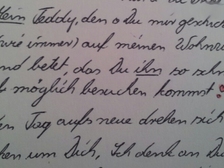 Teddy, den Du mir geschic
(wie immer) auf meinen Wohnzi
und betet, das Du ihn so schn
möglich besuchen kommst
den Tag aufs neue drehen sich
um Dich, Ich denk an d